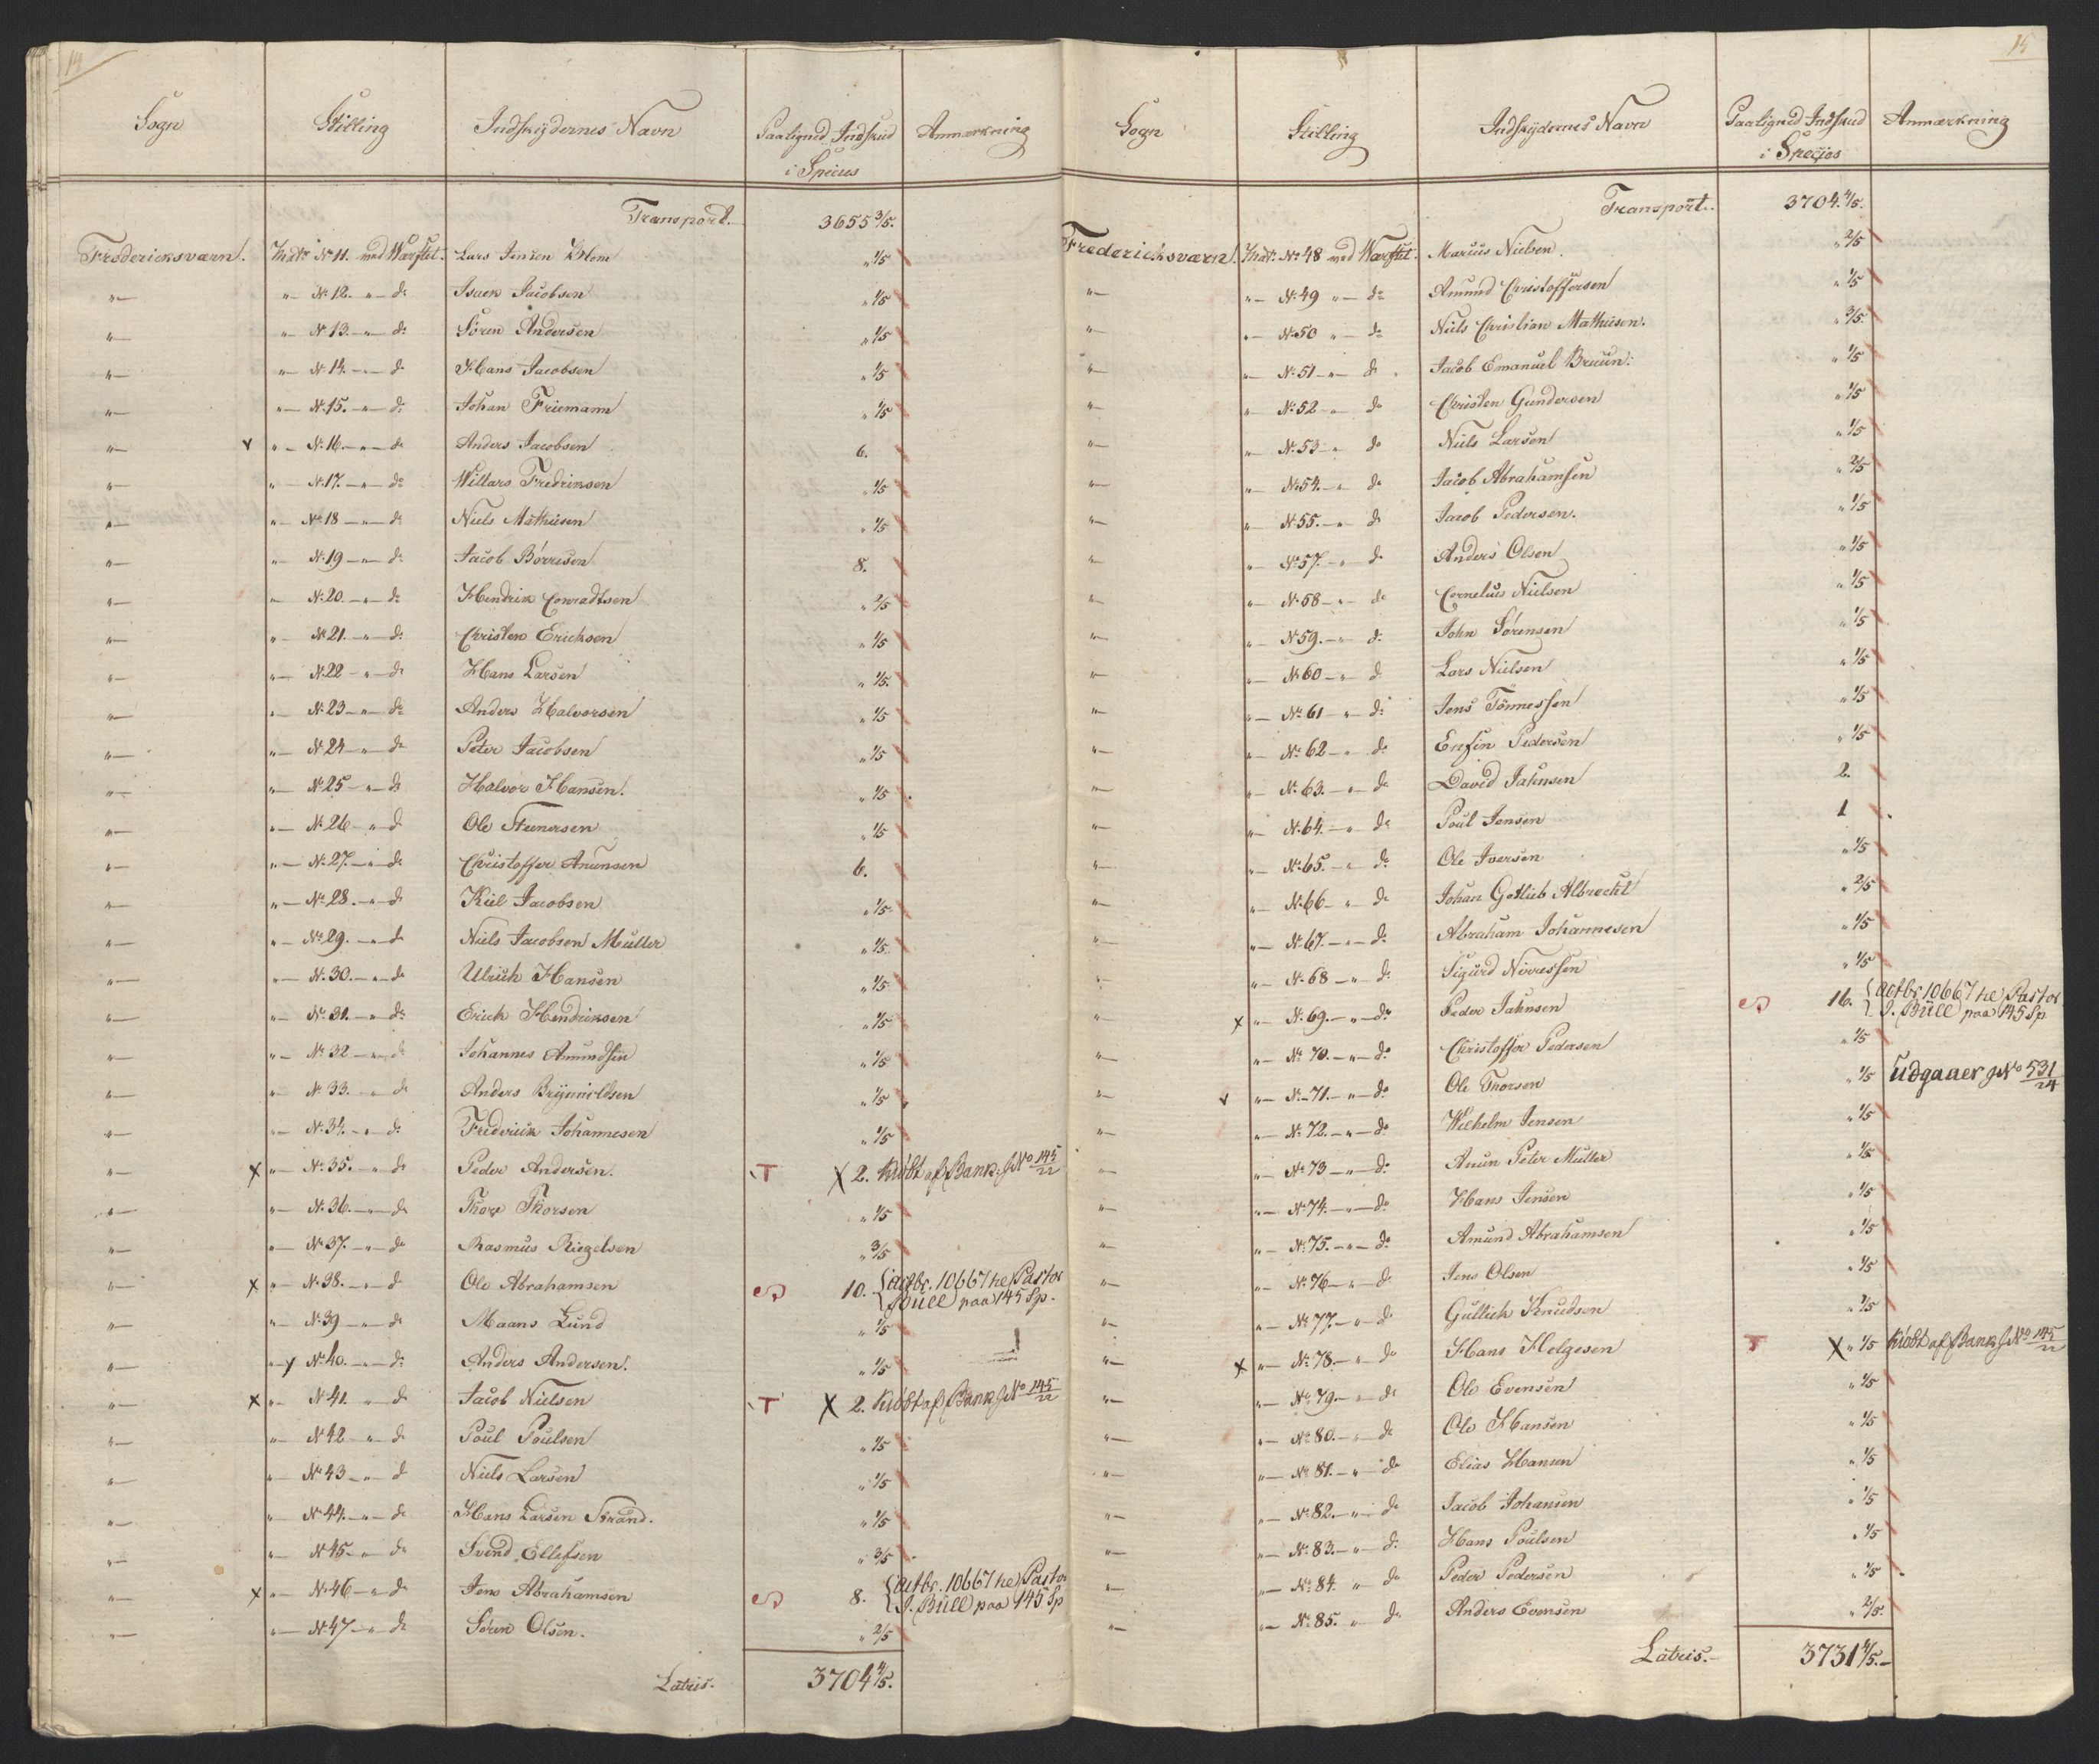 14
Sogn Stilling Indskydernes Navn Paaligned Indskud i Species Anmærkning
Transport. 3655 3/5.
Fredericksværn. Matr. No 11. ved Værftet. Lars Jensen Blom " 1/5
"— "— No 12. "— do Isaek Jacobsen " 1/5
"— "— No 13. "— do Sören Andersen " 1/5
"— "— No 14. "— do Hans Jacobsen " 1/5
"— "— No 15. "— do Johan Friemann " 1/5
"— v "— No 16. "— do Anders Jacobsen 6.
"— "— No 17. "— do Willars Fredriksen " 1/5
"— "— No 18 "— do Niels Mathisen " 1/5
"— "— No 19 "— do Jacob Börresen 8.
"— "— No 20. "— do Hendrik Conradtsen " 2/5
"— "— No 21. "— do Christen Ericksen " 1/5
"— "— No 22 "— do Hans Larsen " 1/5.
"— "— No 23 "— do Anders Halvorsen " 1/5
"— "— No 24 "— do Peter Jacobsen " 1/5
"— "— No 25 "— do Halvor Hansen. " 1/5
"— "— No 26 "— do Ole Steenersen " 1/5
"— "— No 27. "— do Christoffer Anunsen 6.
"— "— No 28. "— do Kiel Jacobsen " 1/5
"— "— No 29. "— do Niels Jacobsen Muller " 1/5
"— "— No 30. "— do Ulrich Hansen " 1/5
"— "— No 31. "— do Erich Hendriksen " 1/5
"— "— No 32 "— do Johannes Amundsen " 1/5
"— "— No 33. "— do Anders Brynnildsen " 1/5
"— "— No 34. "— do Frederick Johannesen " 1/5
"— X "— No 35. "— do Peder Andersen. T X 2. Kiöbt af Bank. J No 145/22
"— "— No 36. "— do Thore Thorsen " 1/5
"— "— No 37. "— do Rasmus Riegelsen " 3/5
"— X "— No 38. "— do Ole Abrahamsen 10. { Actbr. 10667 he Pastor
J Büll paa 145 Sp.
"— "— No 39 "— do Maans Lund " 1/5
"— "— y No 40. "— do Anders Andersen. " 1/5
"— X "— No 41. "— do Jacob Nielsen T X 2. Kiöbt af Bank J No 145/22
"— "— No 42 "— do Poul Poulsen " 1/5
"— "— No 43 "— do Niels Larsen " 1/5
"— "— No 44. "— do Hans Larsen Strand. " 1/5
"— "— No 45. "— do Svend Ellefsen " 3/5
"— X "— No 46 "— do Jens Abrahamsen 8. { Actbr. 10667 he Pastor
J. Büll paa 145 Sp
"— "— No 47 "— do Sören Olsen. " 2/5
Latris. 3704 4/5.
15
Sogn Stilling Indskydernes Navn Paaligned Indskud i Species Anmærkning
Transport. 3704. 4/5.
Frederichsværn. Matr. No 48 ved Værftet. Marcus Nielsen. " 2/5
"— "— No 49 "— do Amund Christoffersen " 1/5
"— "— No 50 "— do Niels Christian Mathisen. " 3/5
"— "— No 51 "— do Jacob Emanuel Bruun. " 1/5
"— "— No 52 "— do Christen Gundersen " 1/5
"— "— No 53 "— do Niels Larsen " 1/5
"— "— No 54. "— do Jacob Abrahamsen " 2/5
"— "— No 55. "— do Jacob Pedersen. " 1/5
"— "— No 57. "— do Anders Olsen " 1/5
"— "— No 58 "— do Cornelius Nielsen " 1/5
"— "— No 59. "— do John Sörensen " 1/5
"— "— No 60 "— do Lars Nielsen " 1/5
"— "— No 61 "— do Jens Tönnessen " 1/5
"— "— No 62 "— do Pedersen " 1/5
"— "— No 63. "— do David Jahnsen 2.
"— "— No 64. "— do Poul Jensen 1
"— "— No 65. "— do Ole Iversen " 1/5
"— "— No 66 "— do Johan Gotlieb Albrecht " 2/5
"— "— No 67. "— do Abraham Johannesen " 1/5
"— "— No 68 "— do Sigurd Nirressen " 1/5
"— X "— No 69. "— do Peder Jahnsen 16. { Actbr. 10667 he Pastor
J. Büll paa 145 Sp
"— "— No 70. "— do Christoffer Pedersen " 1/5
"— v "— No 71. "— do Ole Thorsen " 1/5 Udgaaer J No 531/24
"— "— No 72. "— do Wilhelm Jensen " 1/5
"— "— No 73 "— do Anun Peter Müller " 1/5
"— "— No 74. "— do Hans Jensen " 1/5
"— "— No 75. "— do Amund Abrahamsen " 1/5
"— "— No 76 "— do Jens Olsen " 1/5
"— "— No 77. "— do Gullich Knudsen " 1/5
"— X "— No 78. "— do Hans Helgesen T X " 1/5 Kiöbt af Bank J No 145/22
"— "— No 79. "— do Ole Evensen " 1/5
"— "— No 80. "— do Ole Hansen " 1/5
"— "— No 81. "— do Elias Hansen " 1/5
"— "— No 82. "— do Jacob Johansen " 1/5
"— "— No 83. "— do Hans Poulsen " 1/5
"— "— No 84. "— do Peder Pedersen " 1/5
"— "— No 85. "— do Anders Evensen " 2/5.
Latris. 3731 4/5.